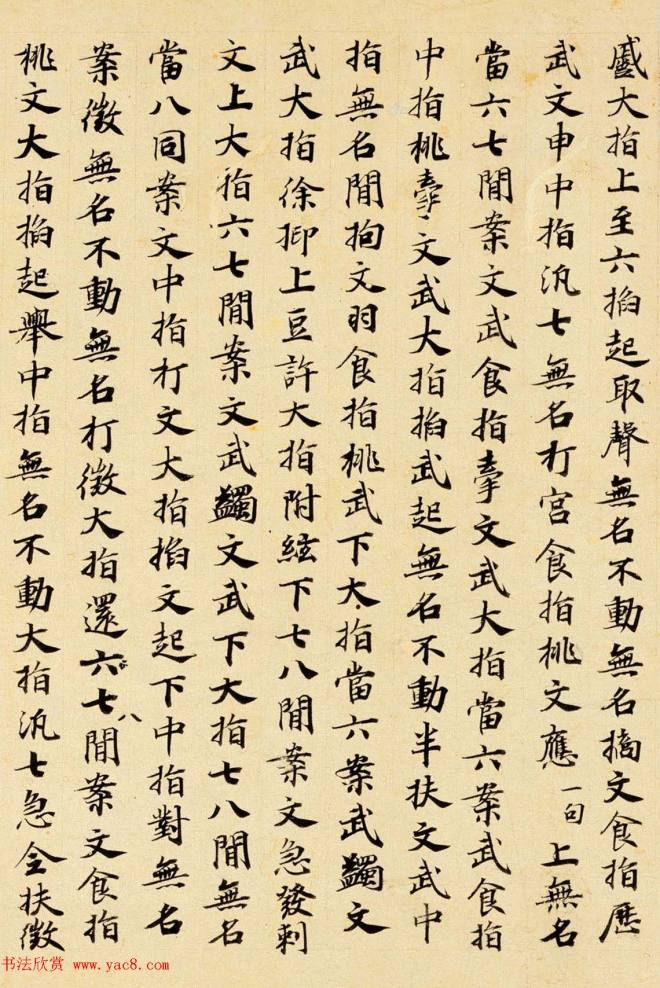 蹙大指上至六掐起取聲無名不動無名擿文食指歷
武文中中指汎七無名打宮食指挑文應一句上無名
當六七間案文武食指牽文武大指當六案武食指
中指挑牽文武大指掐武起無名不動半扶文武中
指無名間拘文羽食指挑武下大指當六案武蠲文
武大指徐抑上豆許大指附絃下七八間案文急發刺
文上大指六七間案文武蠲文武下大指七八間無名
當八同案文中指打文大指掐文起下中指對無名
案徵無名不動無名打徵大指還六七八間案文食指
挑文大指掐起舉中指無名不動大指汎七急全扶徵
书法欣赏 www.yac8.com